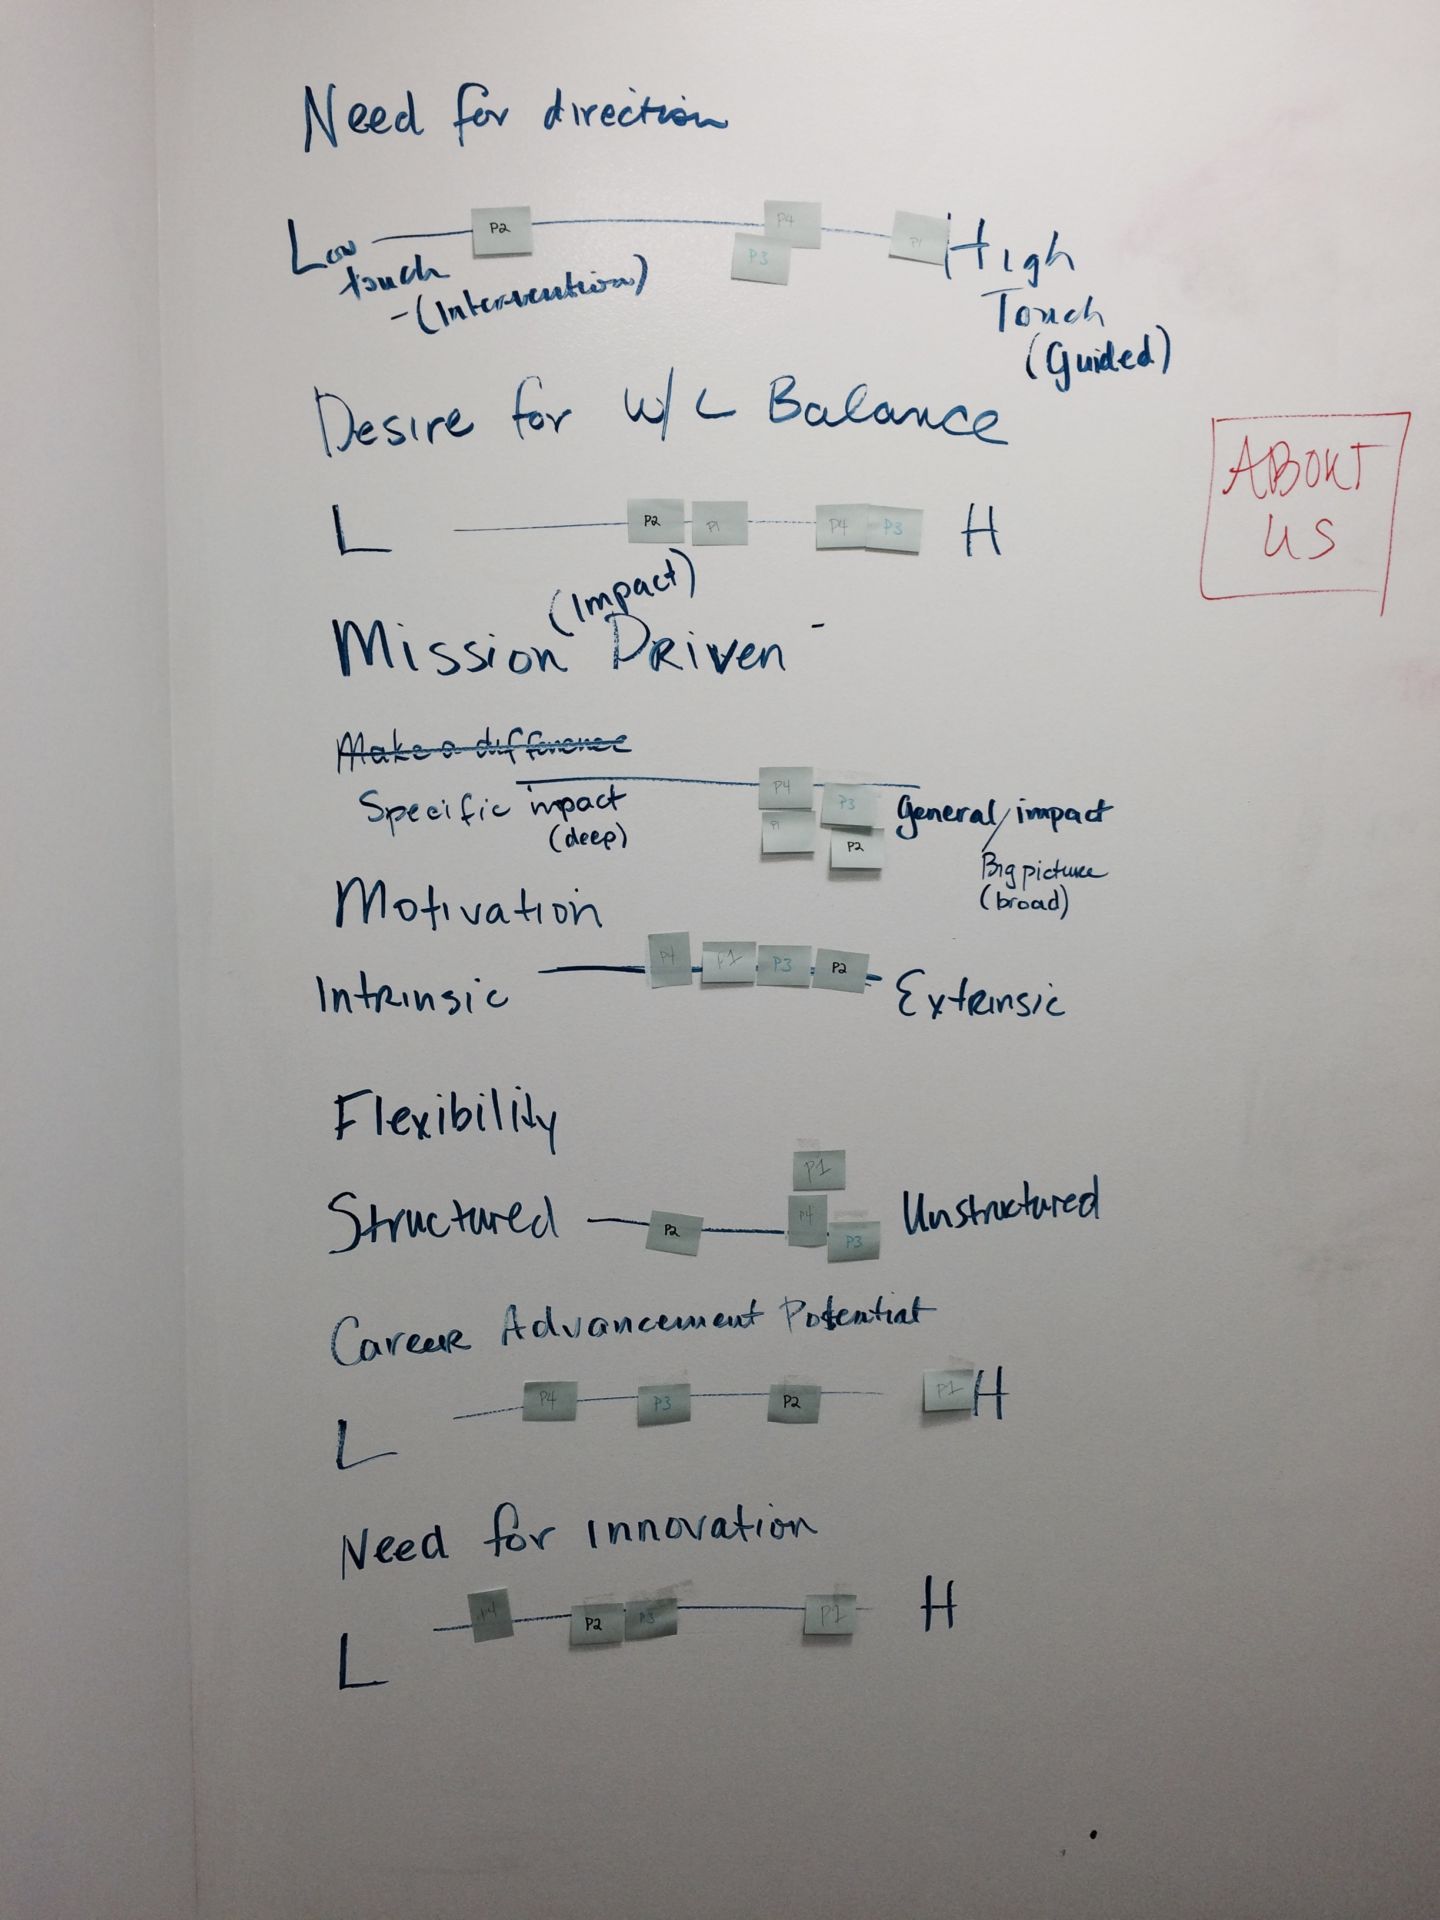 Need for direction
P2 P4 P3 P1
Low touch -(Intervention)
High Touch (Guided)
Desire for W/L Balance
L P2 P1 P4 P3 H
ABOUT
US
(Impact)
Mission Driven -
Make a difference
Specific impact
(deep)
P4 P3
P1 P2
General/impact
Big picture
(broad)
Motivation
P4 P1 P3 P2
Intrinsic Extrinsic
Flexibility
P1
Structured P2 P4 P3 Unstructured
Career Advancement Potential
L P4 P3 P2 P1 H
Need for innovation
L P4 P2 P3 P1 H